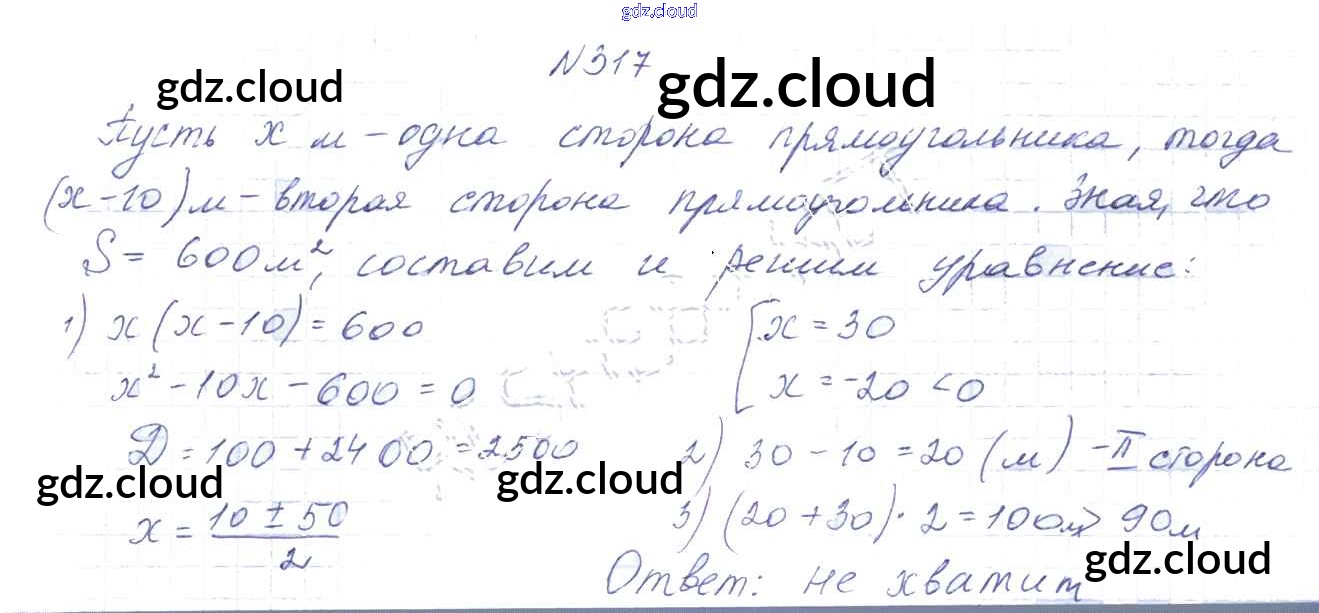 gdz.cloud
N317
gdz.cloud
gdz.cloud
Пусть x м – одна сторона прямоугольника, тогда
(x-10)м – вторая сторона прямоугольника. Зная, что
S = 600м², составим и решим уравнение:
1) x(x-10) = 600
x² - 10x - 600 = 0
D = 100 + 2400 = 2500
gdz.cloud
x = (10 ± 50)/2
[ x = 30
x = -20 < 0
2) 30 - 10 = 20 (м) - II сторона
gdz.cloud
3) (20 + 30) · 2 = 100м > 90м
gdz.cloud
Ответ: не хватит